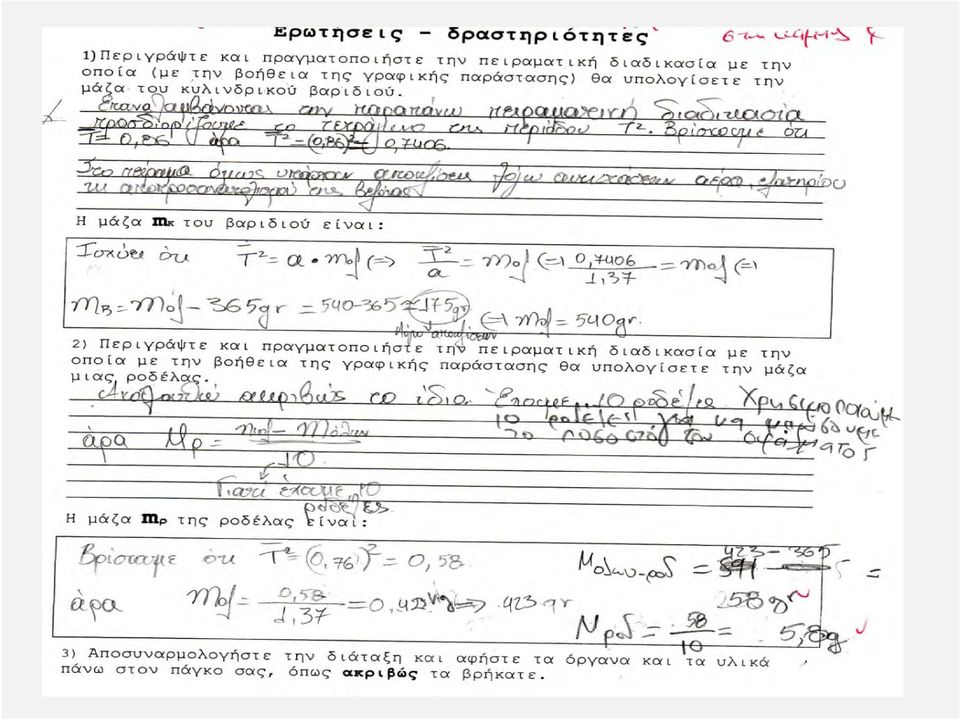 Ερωτήσεις - δραστηριότητες
1) Περιγράψτε και πραγματοποιήστε την πειραματική διαδικασία με την
οποία (με την βοήθεια της γραφικής παράστασης) θα υπολογίσετε την
μάζα του κυλινδρικού βαριδιού.
Επαναλαμβάνοντας την παραπάνω πειραματική διαδικασία
προσδιορίζουμε το τετράγωνο της περιόδου T². Βρίσκουμε ότι
T = 0,86 άρα T² = (0,86)² = 0,7406.
Στο πείραμα όμως υπάρχουν αποκλίσεις λόγω αντιστάσεων αέρα, ελατηρίου
και αποπροσανατολισμού της βελόνας
Η μάζα mκ του βαριδιού είναι:
Ισχύει ότι T² = α · mολ (=> T²/α = mολ (=> 0,7406/1,37 = mολ (=>
mΒ = mολ - 365gr = 540-365 = 175gr (=> mολ = 540gr.
λόγω αποκλίσεων
2) Περιγράψτε και πραγματοποιήστε την πειραματική διαδικασία με την
οποία με την βοήθεια της γραφικής παράστασης θα υπολογίσετε την μάζα
μιας ροδέλας.
Ακολουθώ ακριβώς το ίδιο. Έπαιρνε 10 ροδέλες Χρησιμοποιούμε
10 ροδέλες για να μειώσουμε
το ποσοστό του σφάλματος
άρα Mρ = /10
Γιατί έχουμε 10
ροδέλες
Η μάζα mρ της ροδέλας είναι:
Βρίσκουμε ότι T² = (0,76)² = 0,58
άρα mολ = 0,58/1,37 = 0,423 kg => 423 gr
Mολων-ροδ = 423 - 365 =
58 gr
Mροδ = 58/10 = 5,8g
3) Αποσυναρμολογήστε την διάταξη και αφήστε τα όργανα και τα υλικά
πάνω στον πάγκο σας, όπως ακριβώς τα βρήκατε.